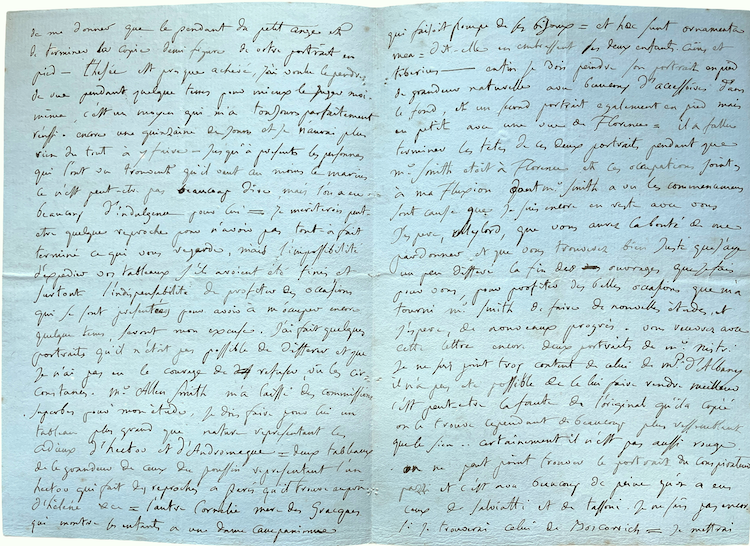 de me donner que le pendant du petit ange et
de terminer la copie demi figure de votre portrait en
pied — Thesée est presque achevé, j'ai voulu le perdre
de vue pendant quelque tems pour mieux le juger moi
même, c'est un moyen qui m'a toujours parfaitement
réussi. encore une quinzaine de jours et je n'aurai plus
rien du tout à y faire — jusqu'à présent les personnes
qui l'ont vu trouvent qu'il vaut au moins le marius
ce n'est peut-etre pas beaucoup dire mais l'on a eu
beaucoup d'indulgence pour lui = Je mériterois peut-
etre quelque reproche pour n'avoir pas tout a fait
terminé ce qui vous regarde, mais l'impossibilité
d'expedier vos tableaux s'ils avoient été finis et
surtout l'indispensabilité de profiter des occasions
qui se sont presentées pour avoir à m'occuper encore
quelque tems, seront mon excuse. J'ai fait quelques
portraits qu'il n'étoit pas possible de differer et que
Je n'ai pas eu le courage de refuser, vu les cir-
constances. Mr. Allen Smith m'a laissé des commissions
superbes pour mon etude. Je dois faire pour lui un
tableau plus grand que nature representant les
adieux d'hector et d'Andromaque = deux tableaux
de la grandeur de ceux du poussin representant l'un
hector qui fait des reproches a Paris qu'il trouve auprès
d'helene &c = l'autre Cornelie mere des Gracques
qui montre ses enfants a une dame campanienne
qui faisoit pompe de ses bijoux = et hæc sunt ornamenta
mea = dit-elle en embrassant ses deux enfants. Caius et
tiberius — enfin je dois peindre son portrait en pied
de grandeur naturelle avec beaucoup d'accessoires dans
le fond, et un second portrait egalement en pied mais
en petit avec une vue de Florence = il a fallu
terminer les têtes de ces deux portraits pendant que
mr. Smith etait à Florence et ces occupations jointes
à ma fluxion dont mr. Smith a vu les commencemens
sont cause que je suis encore en reste avec vous
J'espere, Mylord, que vous aurez la bonté de me
pardonner et que vous trouverez bien juste que j'aye
un peu differé la fin des ouvrages que je fais
pour vous, pour profiter des belles occasions que m'a
fourni mr. Smith de faire de nouvelles etudes, et
J'espere, de nouveaux progrès. vous recevrez avec
cette lettre encor deux portraits de
Je ne suis point trop content de celui de d'Albany
il n'a pas été possible de le lui faire rendre meilleur
c'est peut-etre la faute de l'original qu'il a copié
on le trouve cependant de beaucoup plus ressemblant
que le sien.. certainement il n'est pas aussi rouge
on ne peut point trouver le portrait du Conspirateur
et c'est avec beaucoup de peine qu'on a eu
ceux de Salviatti et de tassoni. Je ne sais pas encore
si je trouverai celui de Boscovich = Je mettrai